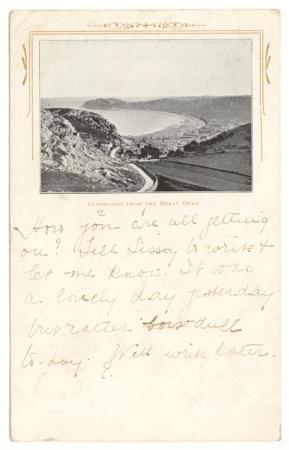 LLANDUDNO FROM THE GREAT ORME.
How you are all getting
on? Tell Sissy to write &
let me know. It was
a lovely day yesterday
but rather dull
to-day. Will write later.